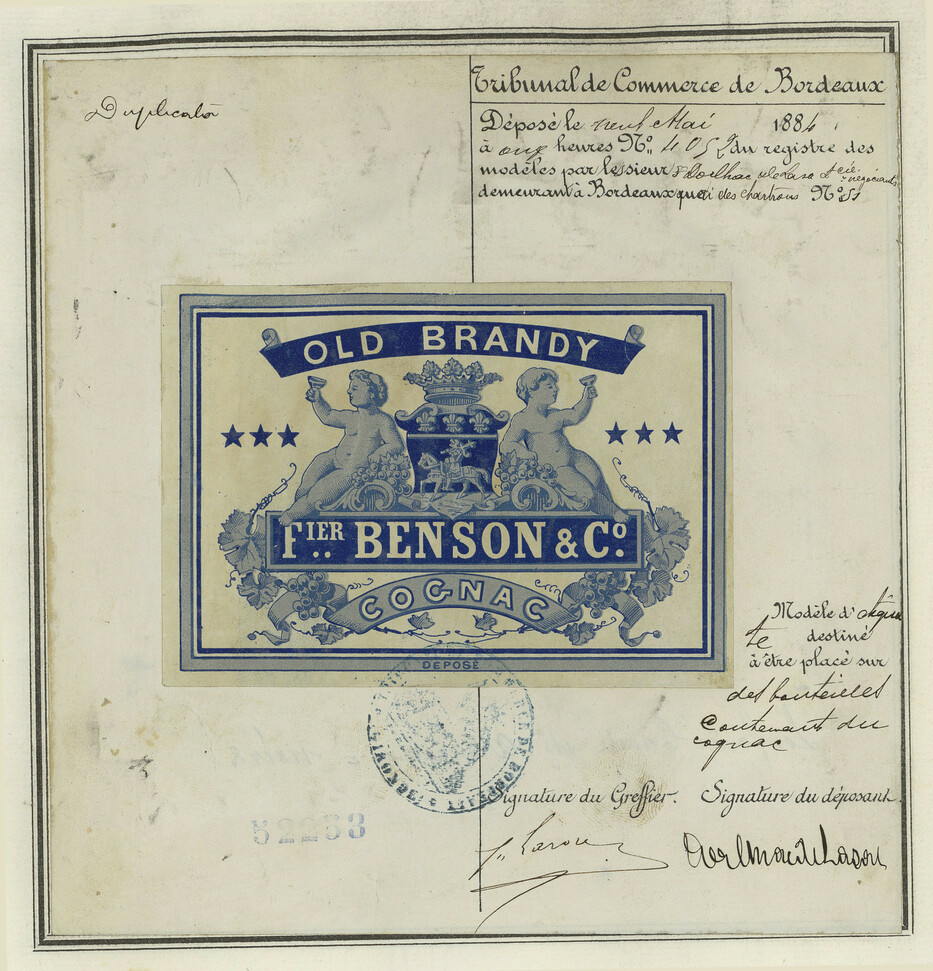 Duplicata
Tribunal de Commerce de Bordeaux
Déposé le neuf Mai 1884
à onze heures No. 4052 du registre des
modèles par le sieur de Lase & Cie négociants
demeurant à Bordeaux quai des Chartrons No 51
OLD BRANDY
FIER BENSON & Co.
COGNAC
DÉPOSÉ
Modèle d'étiquet
te destiné
à être placé sur
des bouteilles
contenant du
cognac
Signature du Greffier. Signature du déposant.
52233